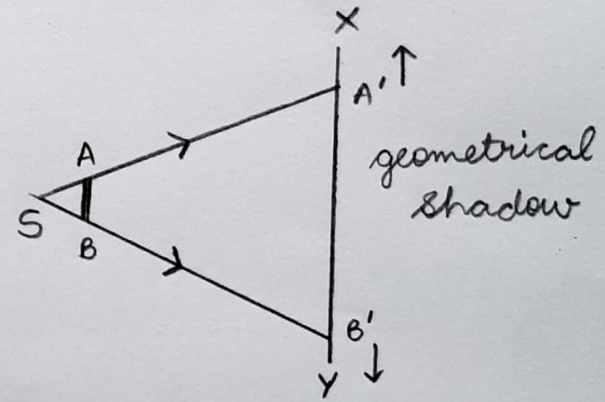 X
A'
geometrical
shadow
A
S
B
B'
Y